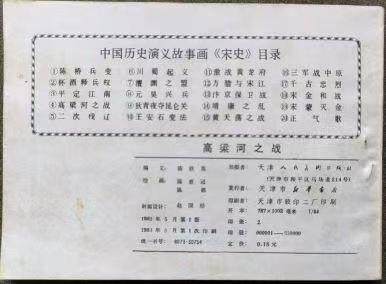 中国历史演义故事画《宋史》目录
①陈桥兵变 ⑥川蜀起义 ⑪激战黄龙府 ⑯三军战中原
②杯酒释兵权 ⑦澶渊之盟 ⑫方腊与宋江 ⑰千古忠烈
③平定江南 ⑧元昊兴兵 ⑬汴京保卫战 ⑱宋金和战
④高梁河之战 ⑨狄青夜夺昆仑关 ⑭靖康之乱 ⑲宋蒙灭金
⑤二次伐辽 ⑩王安石变法 ⑮黄天荡之战 ⑳正气歌
高梁河之战
编文：
绘画：
封面设计：
出版者：天津人民美术出版社
（天津市和平区马场道214号）
发行者：天津市新华书店
印刷者：天津市胶印二厂印刷
开本：787×1092毫米 1/64
印张：2
印数：
定价：0.15元
1981年5月第1版
1981年5月第1次印刷
统一书号：